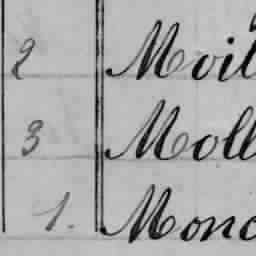 2 Moil
3 Moll
1. Mono